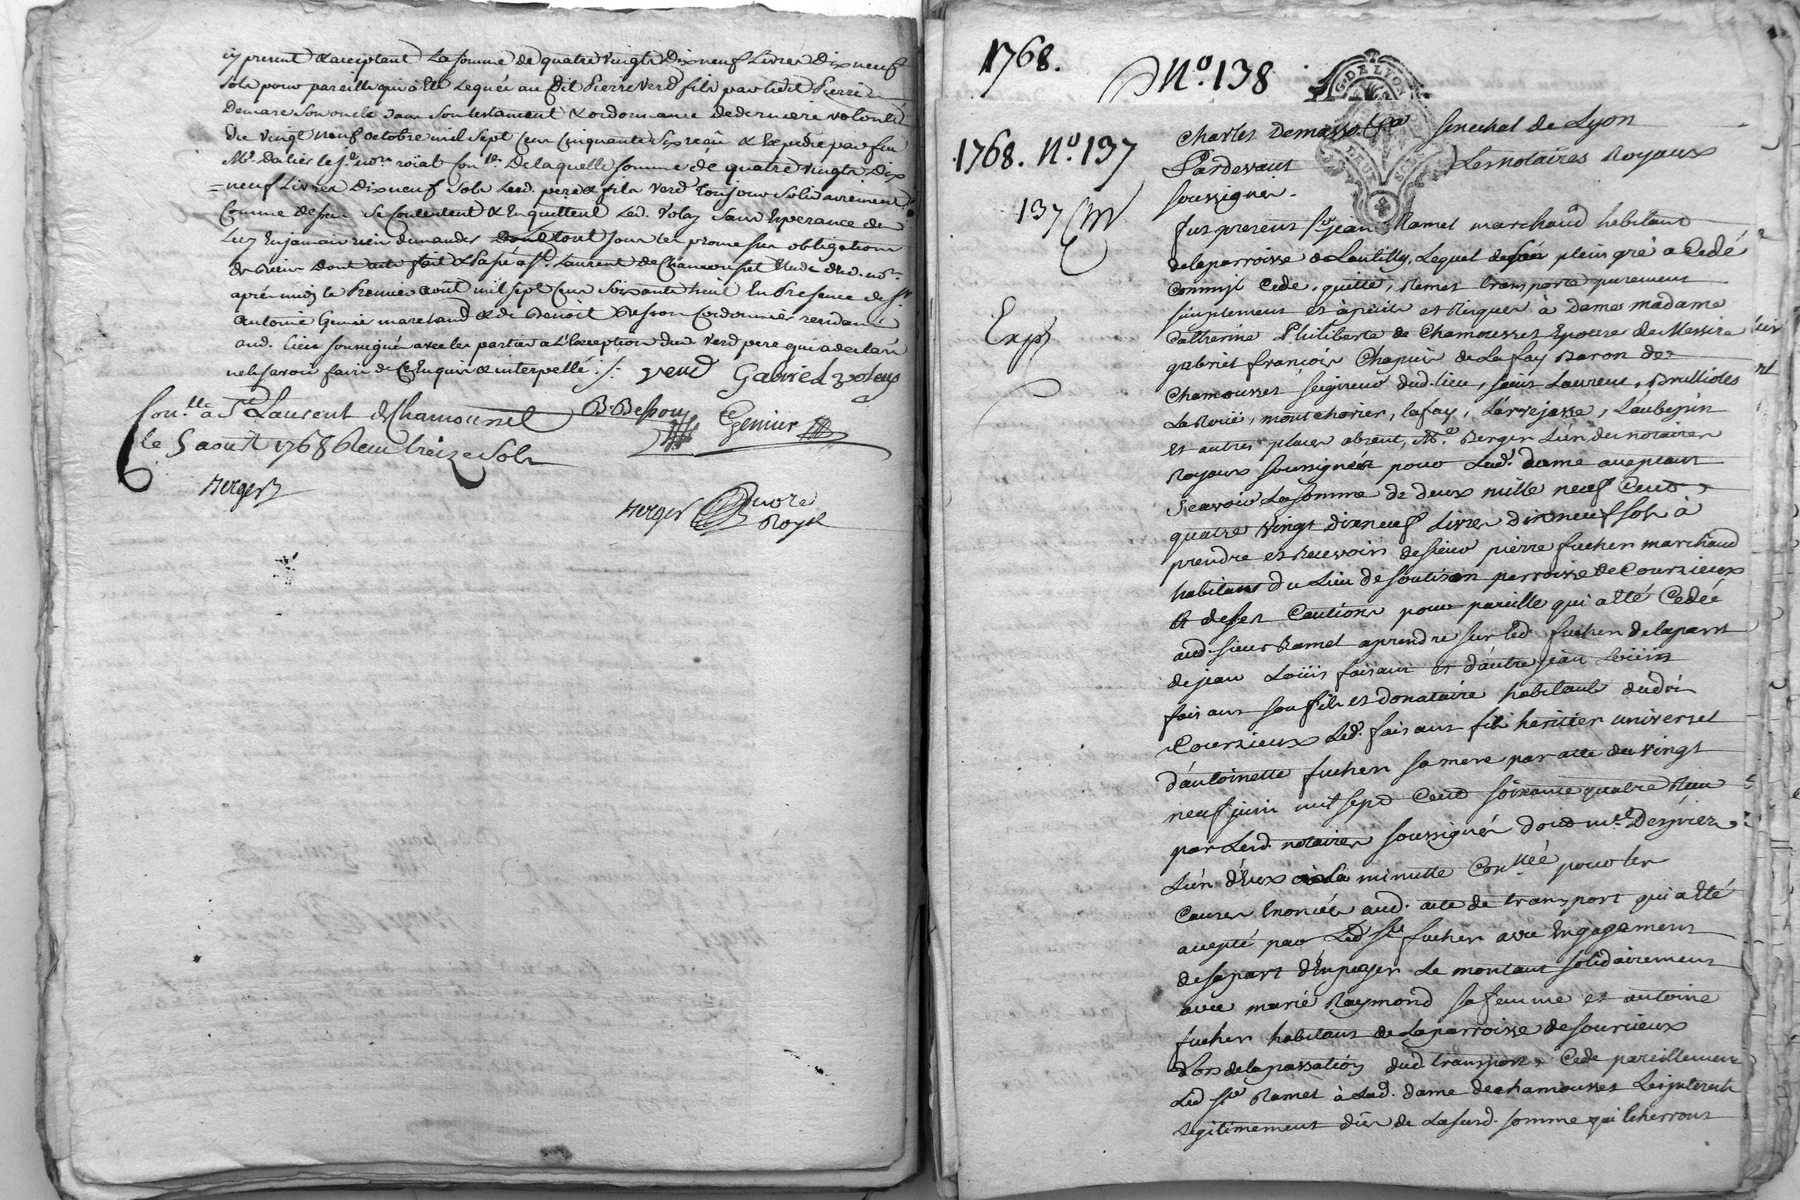 iy present & acceptant La somme de quatre vingts Dix neuf Livres Dix neuf
sols pour pareille qui a été Leguée au Dit Pierre Verd fils par ledit Pierre
Demare son oncle dans son testament & ordonnance de derniere volonté
du vingt neuf octobre mil sept cent cinquante six reçu & Expedié par feu
Me. Dalier le je. nore. roial Conllé. De laquelle somme de quatre vingts Dix
neuf Livres Dix neuf Sols Lesd. pere & fils Verd Toujours solidairement
Comme dessus se contentent & En quittent Led. Volay Sans Esperance de
Luy En jamais rien demander
de Biens Dont acte fait & Passé à St. Laurent de Chamousset Etude dud. nore.
après midy le Premier aout mil sept cent soixante huit En Presence de sr.
antoine Genier marchand & de Benoit Besson Cordonnier residans
aud. lieu soussignés avec les parties a L'Exception dud Verd pere qui a declaré
ne le savoir faire de ce Enquis & interpellé ./. verd Gabriel volay
B. Besson Genier
Conllé à St. Laurent de Chamousset
le 5 aoust 1768 Reçu treize Sols
Berger
Berger nore Royal
1768. No. 138
G. DE LYON
DEUX SOLS
1768. No. 137
137
Exp
Senechal de Lyon
Pardevant Les Notaires Royaux
soussignés.
fut present Sr. jean Ramel marchand habitant
de la parroisse de Lentilly, Lequel de son plein gré a Cedé
Commis Cede, quitte, Remet transporte purement
simplement et à peril et Risques à Dame madame
Catherine Philiberte de Chamousset Epouse de Messire
gabriel françois Chapuis de La fay Baron de
Chamousset Seigneur dud. lieu, saint Laurent, Brullioles
La Roüe, montchorier, lafay, L'arrejasse, L'aubepin
et autres places absent, Me. Berger L'un des notaires
Royaux soussignés pour Lad. dame acceptant
scavoir La somme de deux mille neuf Cent
quatre vingt dix neuf Livres dix neuf sols à
prendre et Recevoir de sieur pierre fucher marchand
habitant du Lieu de soulison parroisse de Courzieux
et de ses Cautions pour pareille qui a été Cedée
aud. sieur Ramel a prendre sur led. fucher de la part
de jean Loüis faisant et d'autre jean Loüis
faisant son fils et donataire habitants dudit
Courzieux Led. faisant fils heritier universel
d'antoinette fucher sa mere par acte du vingt
neuf juin mil sept Cent soixante quatre Reçu
par Lesd. notaires soussignés dont me. Desprier
L'un d'Eux a la minutte Conllée pour les
Causes Enoncées aud. acte de transport qui a été
accepté par Led Sr. fucher avec Engagement
de sa part d'En payer Le montant solidairement
avec marie Raymond sa femme et antoine
fucher habitants de La parroisse de sourcieux
Lors de la passation dud transport, Cede pareillement
Led Sr. Ramel à Lad. dame de chamousset Les interets
Legitimement dus de La susd. somme qui Echerront